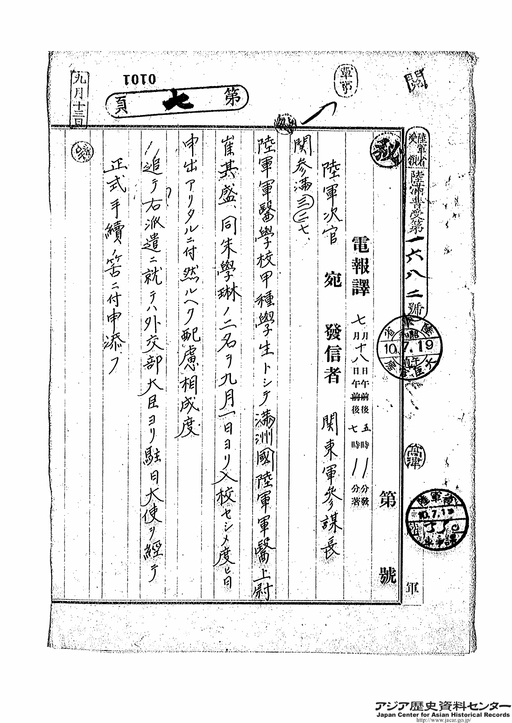 0101
第七頁
九月十三日
閲
陸軍省受領
陸満普受第一六八二號
10.7.19
秘
電報譯 第 號
七月十八日午後五時 分發
七月十八日午後七時一一分著
陸軍次官宛 發信者 關東軍參謀長
関参満三二七
陸軍軍醫學校甲種學生トシテ満洲國陸軍軍醫上尉
崔其盛、同朱學琳ノ二名ヲ九月一日ヨリ入校セシメ度旨
申出アリタルニ付然ルヘク配慮相成度
追テ右派遣ニ就テハ外交部大臣ヨリ駐日大使ヲ經テ
正式手續ノ筈ニ付申添フ
アジア歴史資料センター
Japan Center for Asian Historical Records
http://www.jacar.go.jp/